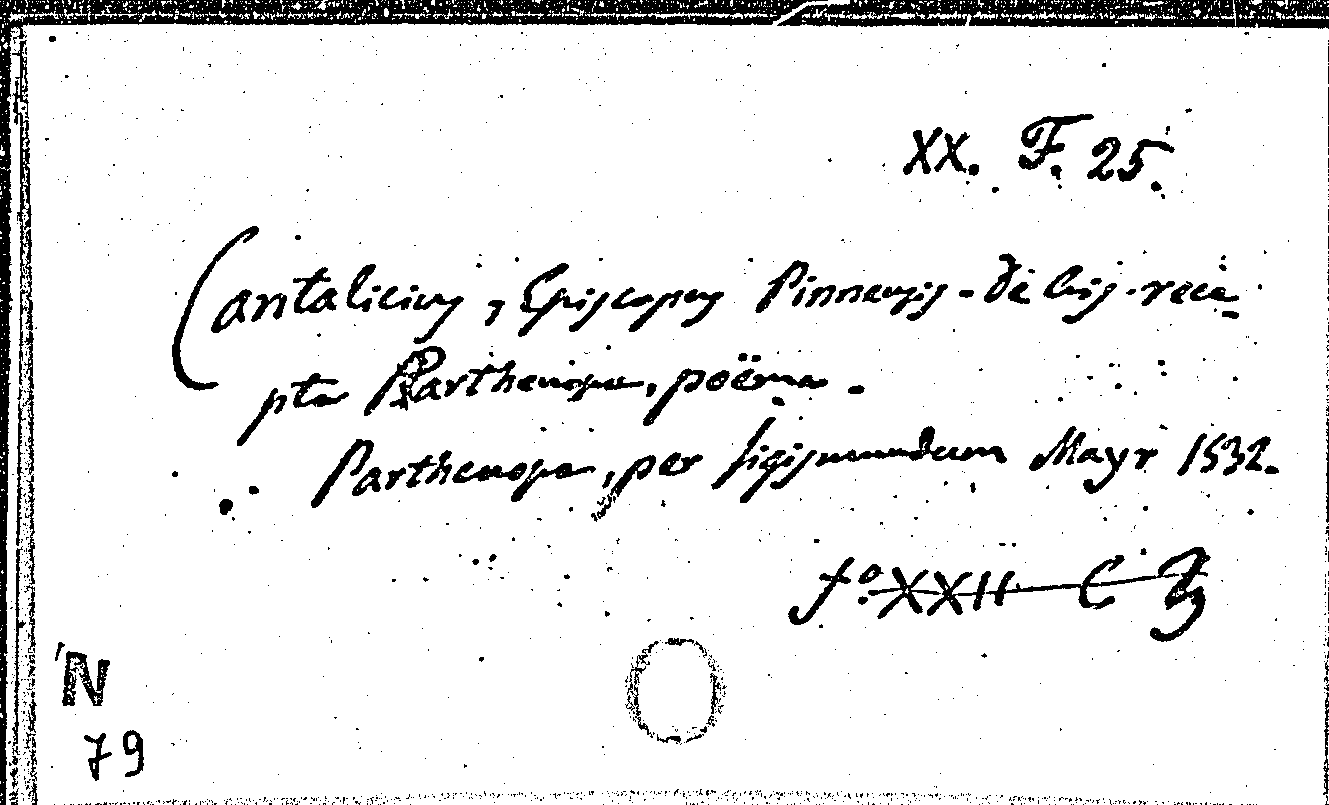 XX. F. 25.
Cantalicius, Episcopus Pinnensis - De bis - rece-
pta Parthenope, poëma.
Parthenope, per sigismundum Mayr 1532.
fº. XXII C
N
79